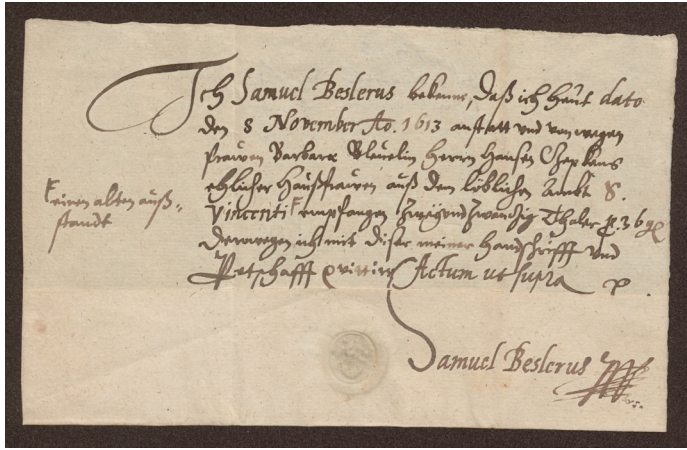 Ich Samuel Beslerus bekenne, daß ich heut dato
den 8 November Ao. 1613 anstatt und von wegen
frauen Barbara Bleuelin Herrn Hansen
ehlicher Haußfrauen auß dem löblichen Ambt S.
Vincenti empfangen Zweyundzwanzig Thaler p. 36 gl
derowegen ich mit diser meiner Handschrifft und
Petschafft quittire Actum ut supra
einen alten auß=
standt
Samuel Beslerus